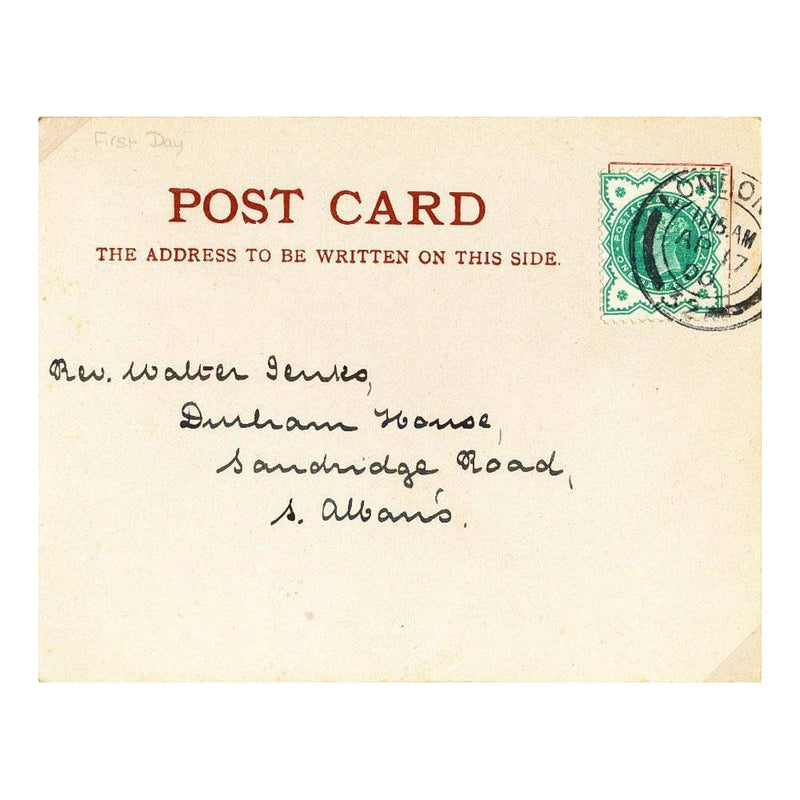 First Day
POST CARD
THE ADDRESS TO BE WRITTEN ON THIS SIDE.
LONDON
11.15.AM
AP 17
00
32
POSTAGE
Rev. Walter Jenks,
Durham House,
Sandridge Road,
S. Alban's.